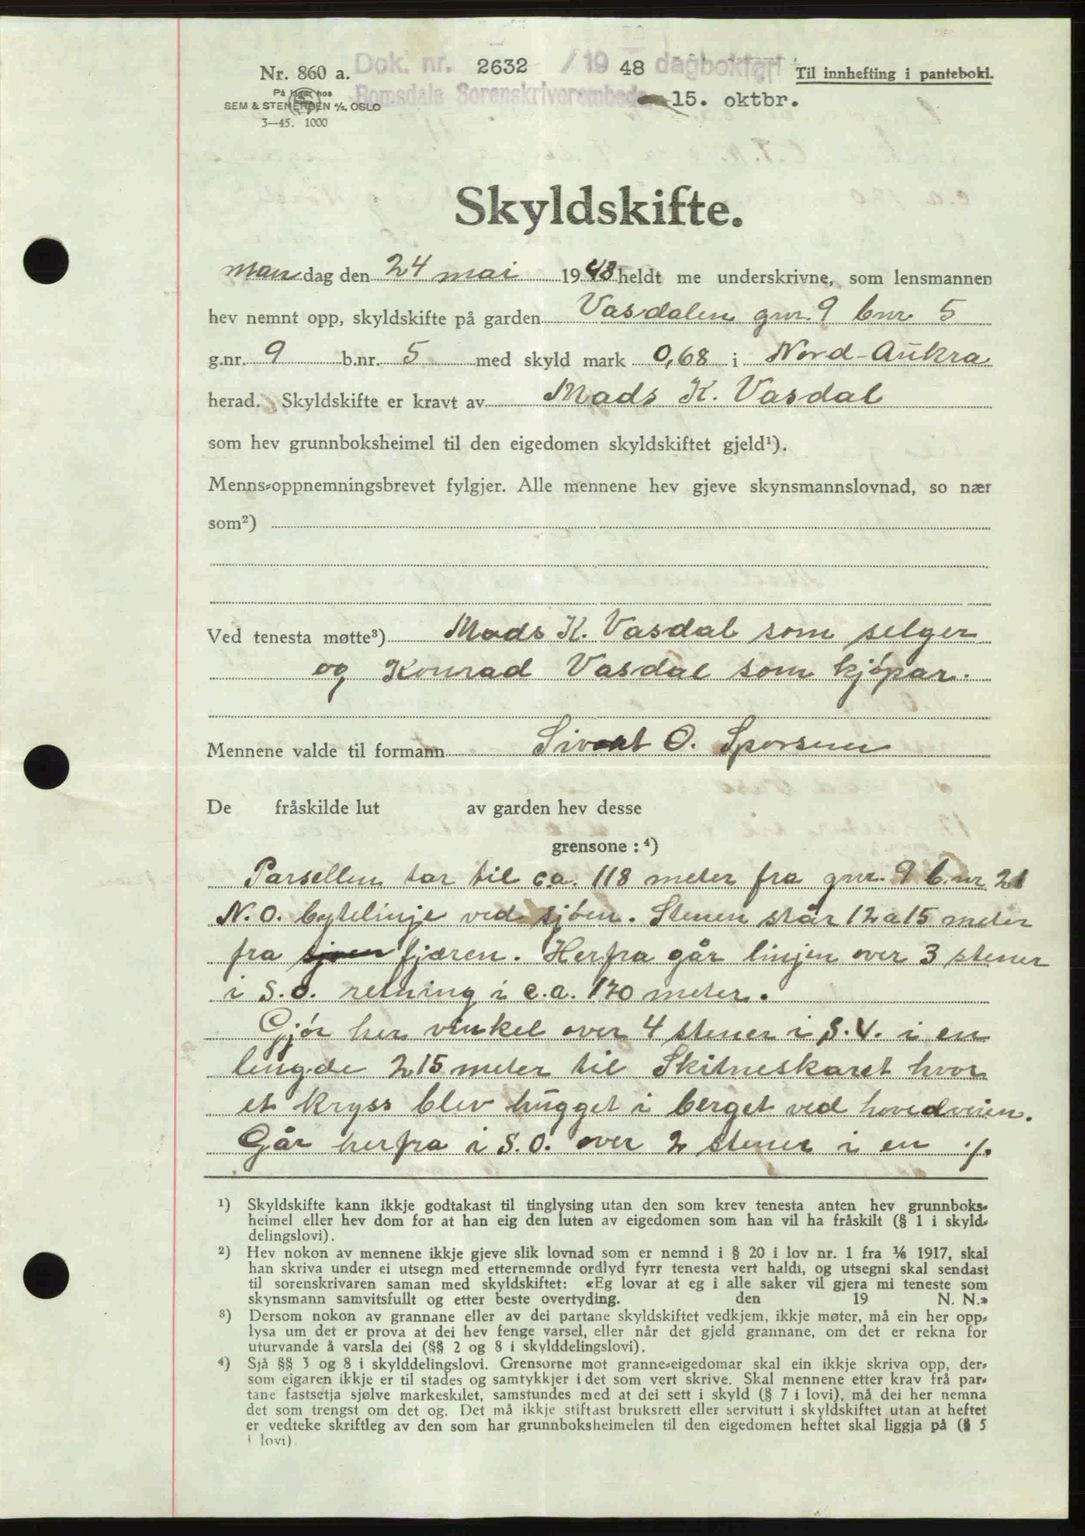 Nr. 860 a. Dok. nr. 2632 / 19 48 dagbokført Til innhefting i panteboki.
På lager hos Romsdals Sorenskriverembede 15. oktbr.
SEM & STENERSEN A/S, OSLO
3—45. 1000
Skyldskifte.
Mandag den 24 mai 1948 heldt me underskrivne, som lensmannen
hev nemnt opp, skyldskifte på garden Vasdalen gnr. 9 bnr 5
g.nr. 9 b.nr. 5 med skyld mark 0,68 i Nord-Aukra
herad. Skyldskifte er kravt av Mads K. Vasdal
som hev grunnboksheimel til den eigedomen skyldskiftet gjeld¹).
Menns-oppnemningsbrevet fylgjer. Alle mennene hev gjeve skynsmannslovnad, so nær
som²)
Ved tenesta møtte³) Mads K. Vasdal som selger
og Konrad Vasdal som kjøpar.
Mennene valde til formann Sivert O. Sporsem
De fråskilde lut av garden hev desse
grensone : ⁴)
Parsellen tar til ca. 118 meter fra gnr. 9 b.nr 21
N.O. bytelinje ved sjøen. Stenen står 12 a 15 meter
fra sjøen fjæren. Herfra går linjen over 3 stener
i S.O. retning i c.a. 170 meter.
Gjør her vinkel over 4 stener i S.V. i en
lengde 215 meter til Skitneskaret hvor
et kryss blev hugget i berget ved hovedveien.
Går herfra i S.O. over 2 stener i en ./.
¹) Skyldskifte kann ikkje godtakast til tinglysing utan den som krev tenesta anten hev grunnboks-
heimel eller hev dom for at han eig den luten av eigedomen som han vil ha fråskilt (§ 1 i skyld-
delingslovi).
²) Hev nokon av mennene ikkje gjeve slik lovnad som er nemnd i § 20 i lov nr. 1 fra ⅙ 1917, skal
han skriva under ei utsegn med etternemnde ordlyd fyrr tenesta vert haldi, og utsegni skal sendast
til sorenskrivaren saman med skyldskiftet: «Eg lovar at eg i alle saker vil gjera mi teneste som
skynsmann samvitsfullt og etter beste overtyding. den 19 N. N.»
³) Dersom nokon av grannane eller av dei partane skyldskiftet vedkjem, ikkje møter, må ein her opp-
lysa um det er prova at dei hev fenge varsel, eller når det gjeld grannane, om det er rekna for
uturvande å varsla dei (§§ 2 og 8 i skylddelingslovi).
⁴) Sjå §§ 3 og 8 i skylddelingslovi. Grensorne mot granne-eigedomar skal ein ikkje skriva opp, der-
som eigaren ikkje er til stades og samtykkjer i det som vert skrive. Skal mennene etter krav frå par-
tane fastsetja sjølve markeskilet, samstundes med at dei sett i skyld (§ 7 i lovi), må dei her nemna
det som trengst om det og. Det må ikkje stiftast bruksrett eller servitutt i skyldskiftet utan at heftet
er vedteke skriftleg av den som har grunnboksheimelen til den eigedomen heftet skal liggja på (§ 5
i lovi).